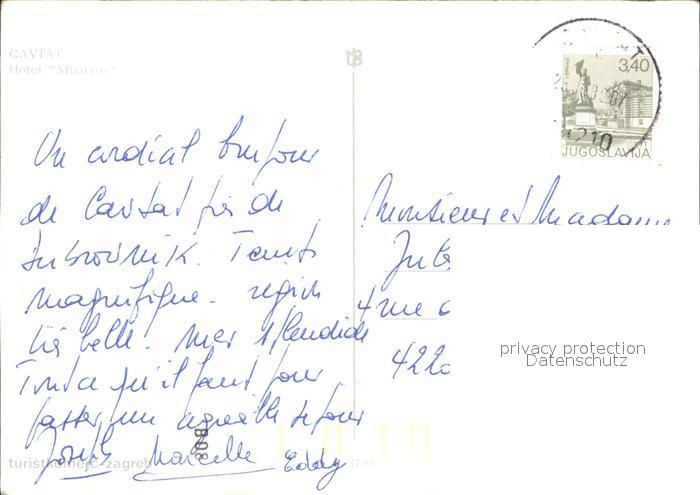 CAVTAT
Hotel "Albatros"
3,40
JUGOSLAVIJA
Un cordial bonjour
de Cavtat près de
Dubrovnik. Temps
magnifique. région
très belle. mer splendide
Tout ce qu'il faut pour
passer un agréable séjour
Joseph Marcelle Eddy
Monsieur et Madame
4 rue
4220
privacy protection
Datenschutz
turistkomerc-zagreb
B08